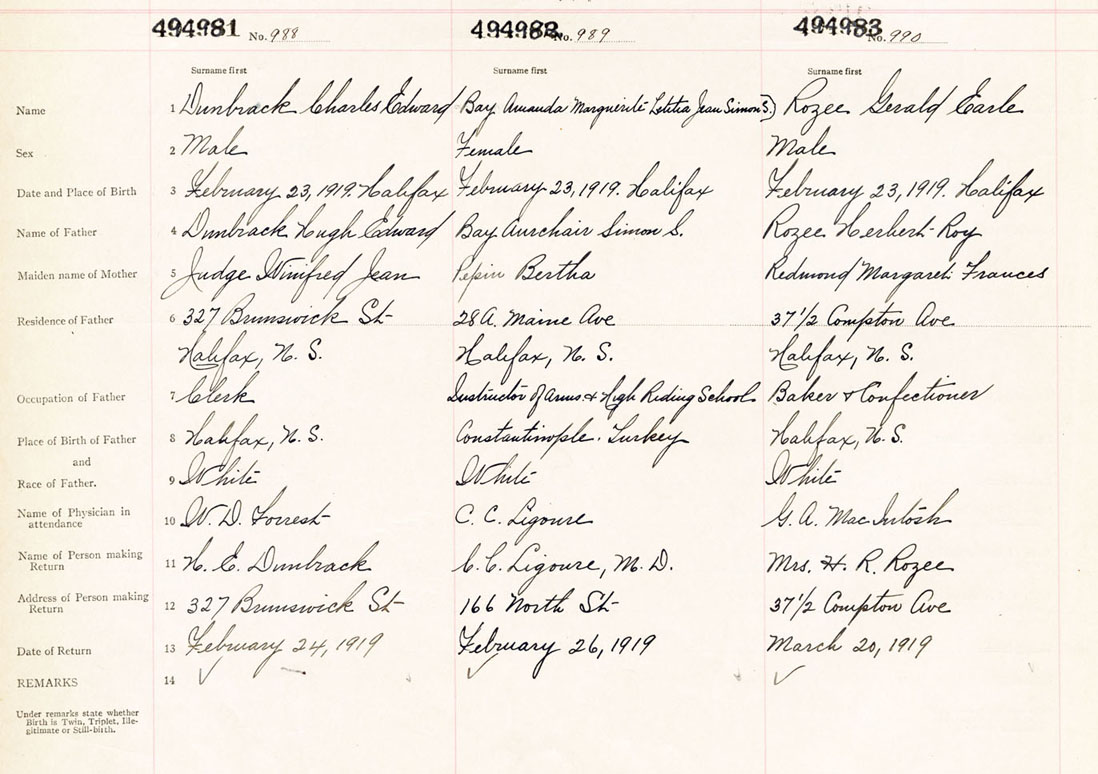 494981 No. 988 494982 No. 989 494983 No. 990
Surname first Surname first Surname first
Name 1 Dunbrack Charles Edward Bay Amanda Marguerite Letitia Jean Simon S.) Rozee Gerald Earle
Sex 2 Male Female Male
Date and Place of Birth 3 February 23, 1919. Halifax February 23, 1919. Halifax February 23, 1919. Halifax
Name of Father 4 Dunbrack Hugh Edward Bay Aurchair Simon S. Rozee Herbert Roy
Maiden name of Mother 5 Judge Winifred Jean Pepin Bertha Redmond Margaret Frances
Residence of Father 6 327 Brunswick St 28A. Maine Ave 37 1/2 Compton Ave
Halifax, N. S. Halifax, N. S. Halifax, N. S.
Occupation of Father 7 Clerk Instructor of Arms & High Riding School Baker & Confectioner
Place of Birth of Father 8 Halifax, N. S. Constantinople. Turkey Halifax, N. S.
and
Race of Father. 9 White White White
Name of Physician in attendance 10 W. D. Forrest C. C. Ligoure G. A. MacIntosh
Name of Person making Return 11 H. E. Dunbrack C. C. Ligoure, M. D. Mrs. H. R. Rozee
Address of Person making Return 12 327 Brunswick St 166 North St 37 1/2 Compton Ave
Date of Return 13 February 24, 1919 February 26, 1919 March 20, 1919
REMARKS 14
Under remarks state whether
Birth is Twin, Triplet, Ille-
gitimate or Still-birth.